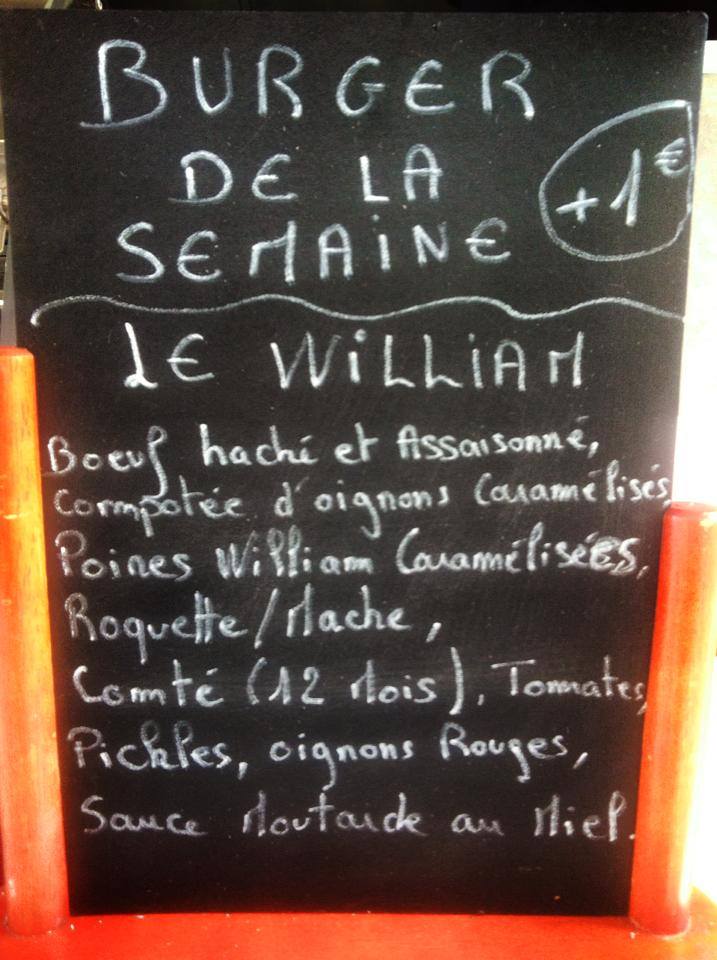 BURGER
DE LA
SEMAINE
+1€
LE WILLIAM
Boeuf haché et Assaisonné,
Compotée d'oignons Caramélisés
Poires William Caramélisées,
Roquette/Mache,
Comté (12 Mois), Tomates,
Pickles, oignons Rouges,
Sauce Moutarde au Miel.